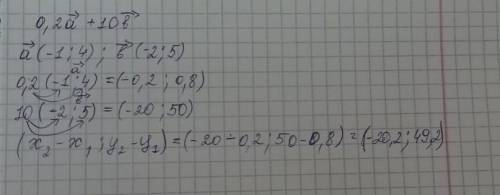 0,2a⃗ + 10b⃗
a⃗ (-1; 4) ; b⃗ (-2; 5)
0,2 (-1; 4) = (-0,2 ; 0,8)
10 (-2; 5) = (-20; 50)
(x₂ - x₁ ; y₂ - y₁) = (-20 - 0,2; 50 - 0,8) = (-20,2; 49,2)